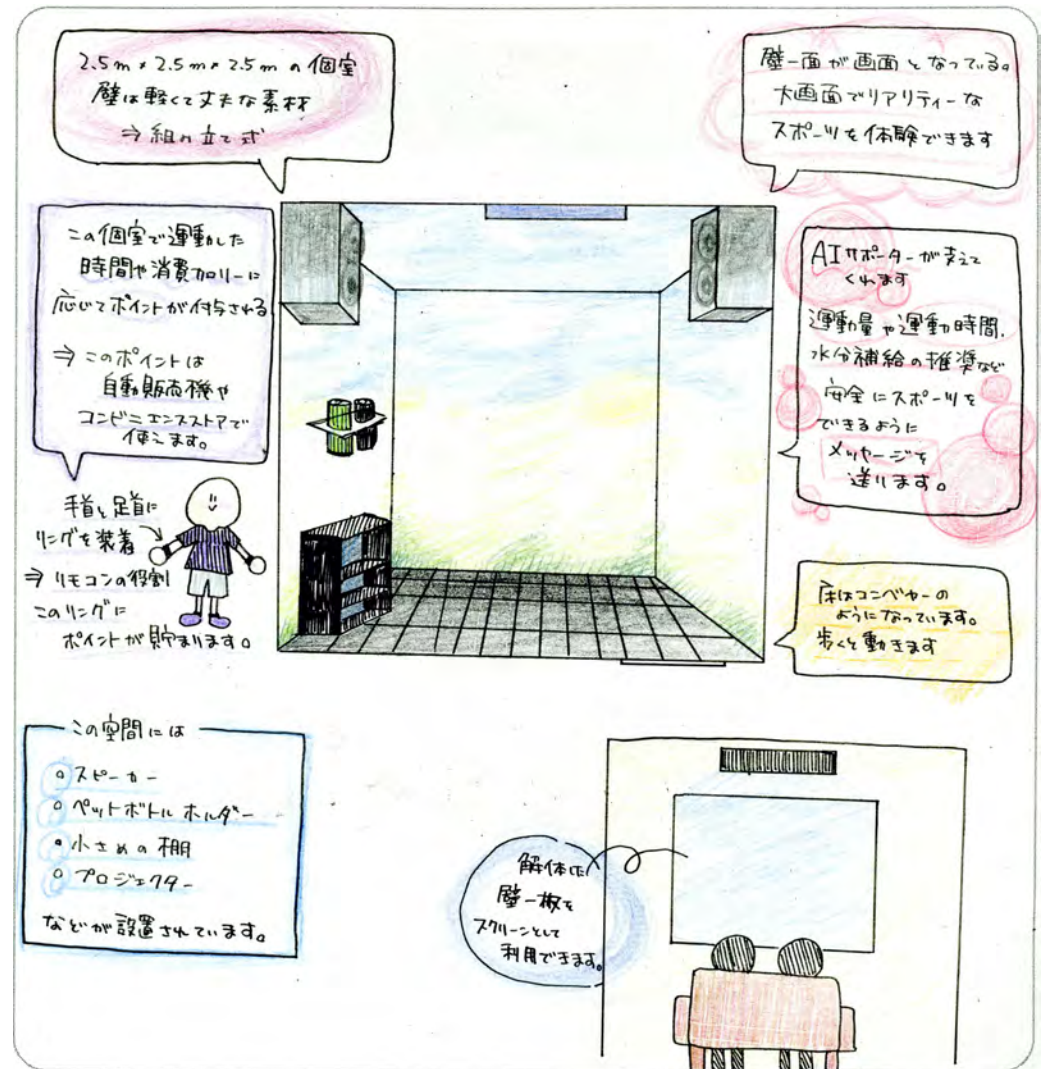 2.5m*2.5m*2.5mの個室
壁は軽くて丈夫な素材
⇒組み立て式
壁一面が画面となっている。
大画面でリアリティーな
スポーツを体験できます
この個室で運動した
時間や消費カロリーに
応じてポイントが付与される
⇒このポイントは
自動販売機や
コンビニエンスストアで
使えます。
AIサポーターが支えて
くれます
運動量や運動時間、
水分補給の推奨など
安全にスポーツを
できるように
メッセージを
送ります。
手首と足首に
リングを装着
⇒リモコンの役割
このリングに
ポイントが貯まります。
床はコンベヤーの
ようになっています。
歩くと動きます
この空間には
・スピーカー
・ペットボトルホルダー
・小さめの棚
・プロジェクター
などが設置されています。
解体した
壁一枚を
スクリーンとして
利用できます。